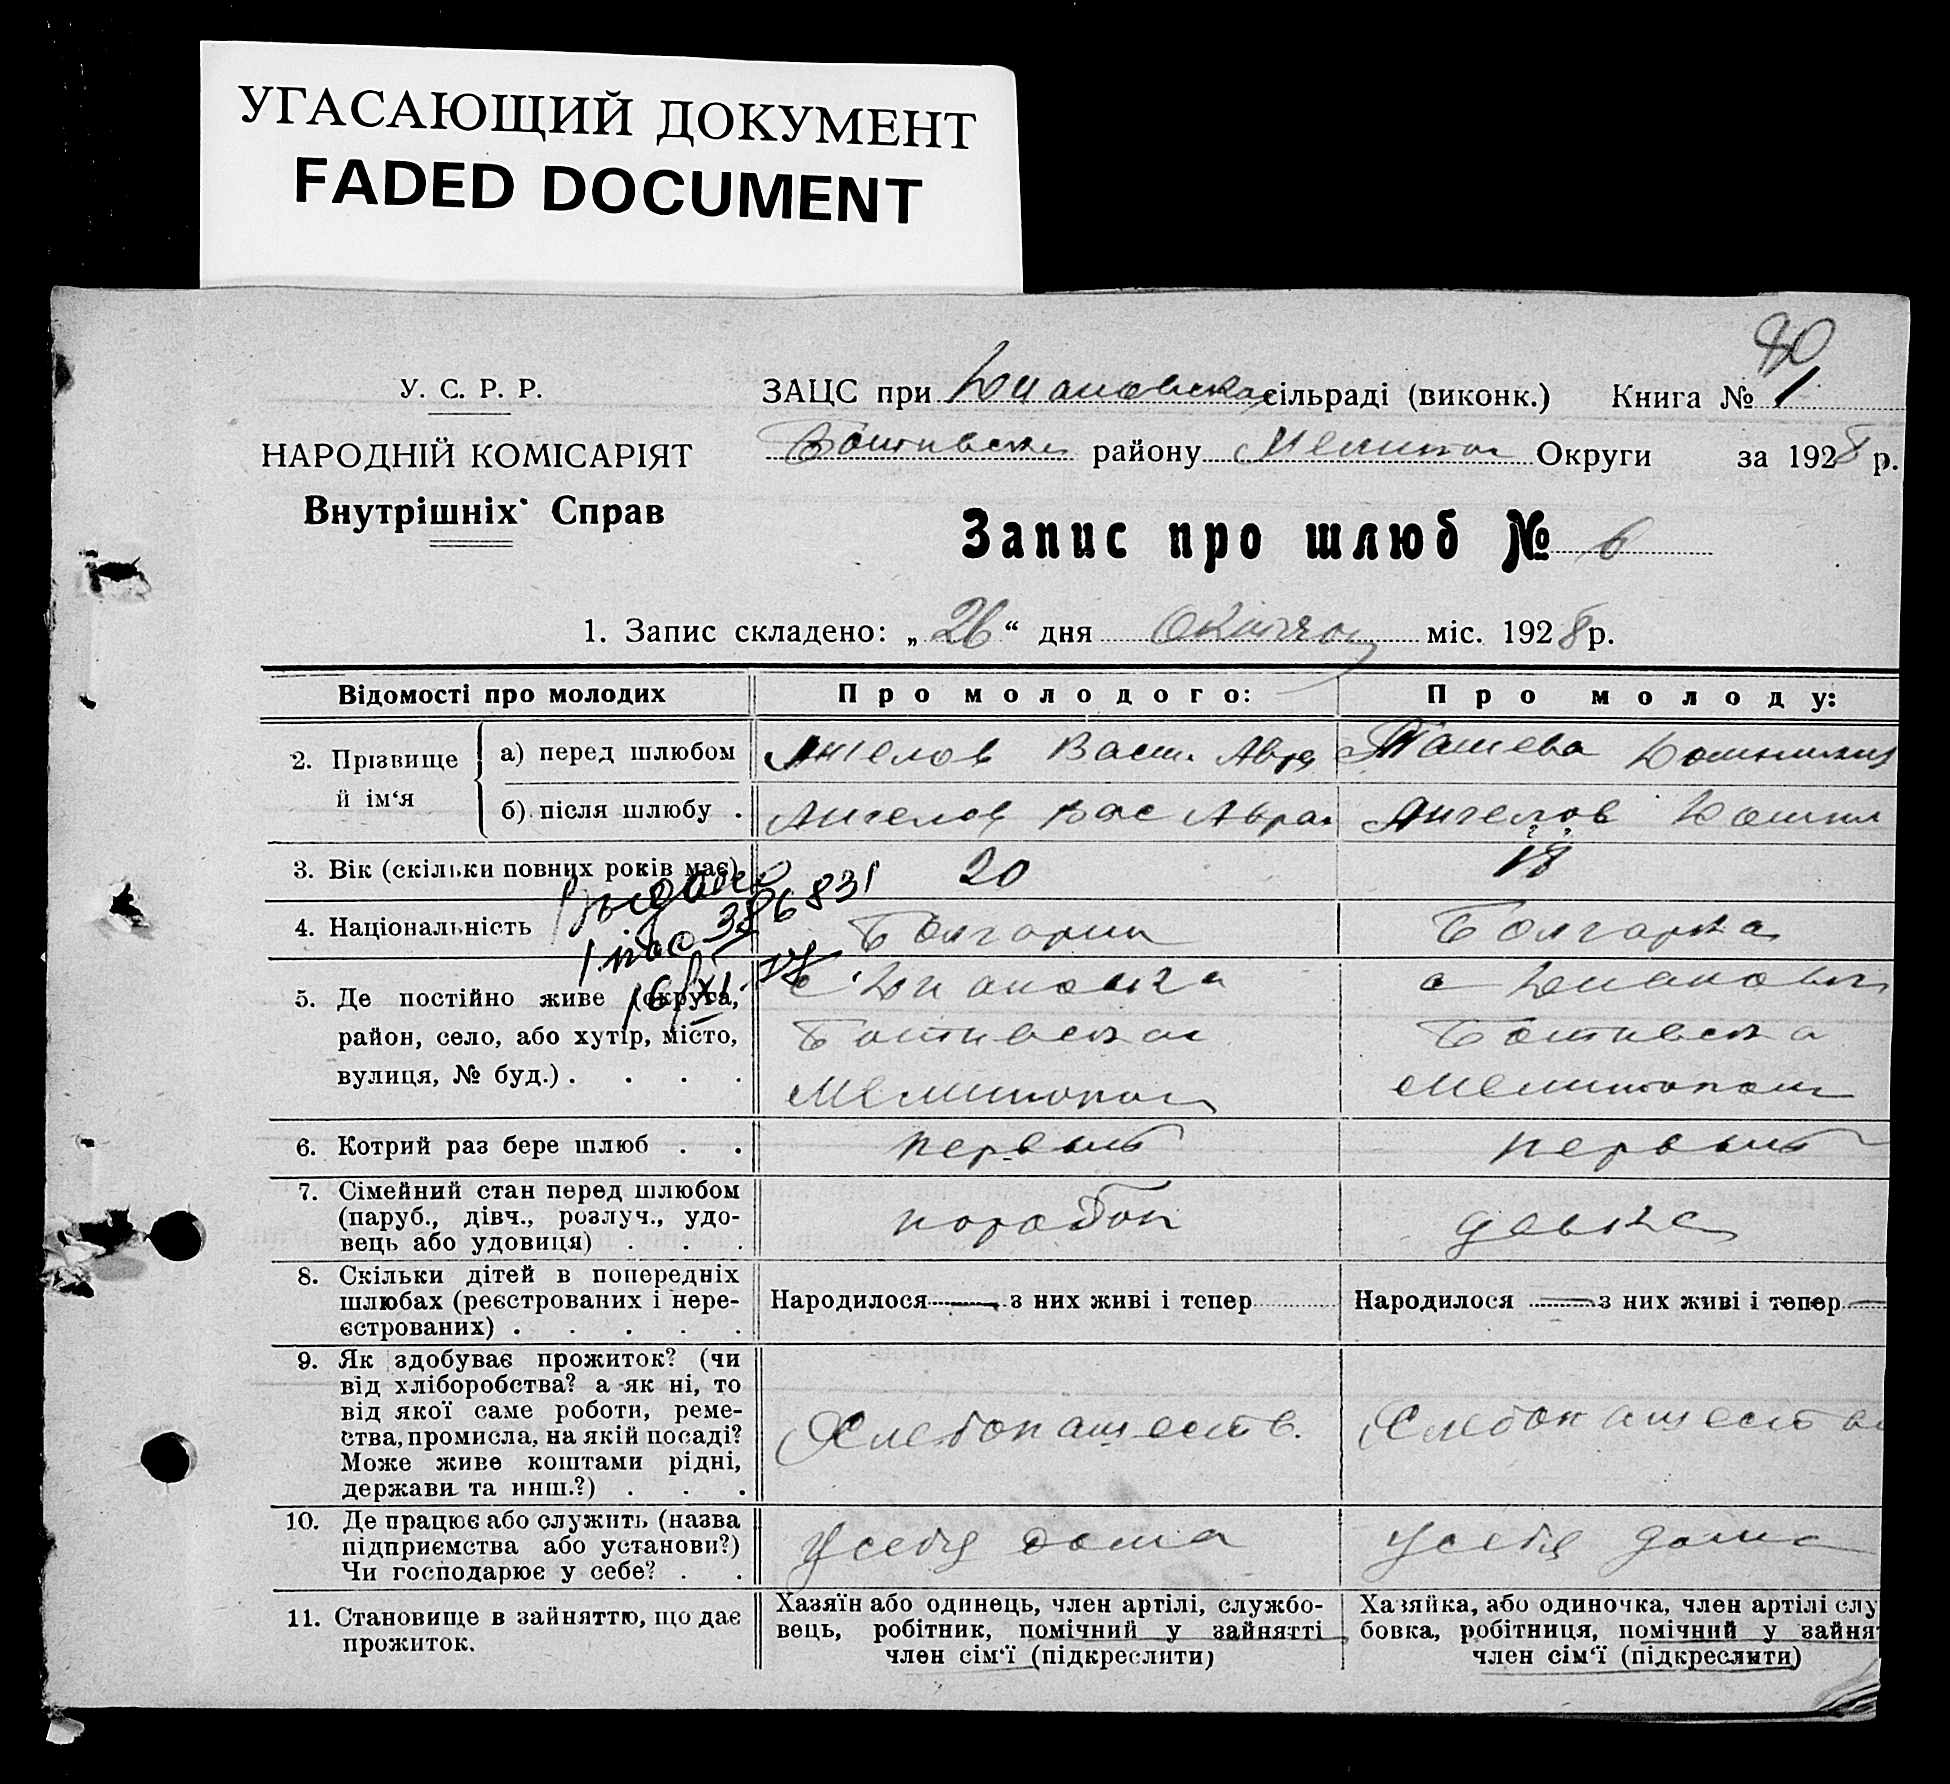 УГАСАЮЩИЙ ДОКУМЕНТ
FADED DOCUMENT
80
У. С. Р. Р.
НАРОДНІЙ КОМІСАРІЯТ
Внутрішніх Справ
ЗАЦС при Диановска сільраді (виконк.) Книга № 1
Ботивски району Мелитоп Округи за 1928 р.
Запис про шлюб № 6
1. Запис складено: „ 26 “ дня міс. 1928 р.
Відомості про молодих Про молодого: Про молоду:
2. Прізвище й ім‘я
а) перед шлюбом Ангелов Васил. Авра Ташева
б) після шлюбу . Ангелов Вас Аврам Ангелов
3. Вік (скільки повних років має) 20 18
Выдано
1 пас 386831
16/XI
4. Національність Болгарин Болгарка
5. Де постійно живе (округа, район, село, або хутір, місто, вулиця, № буд.) . . . .
с. Диановка
Ботивска
Мелитопол
с Диановк
Ботивска
Мелитопол
6. Котрий раз бере шлюб . . первый первый
7. Сімейний стан перед шлюбом (паруб., дівч., розлуч., удо-
вець або удовиця) . . . паробок девка
8. Скільки дітей в попередніх
шлюбах (реєстрованих і нере-
єстрованих) . . . . .
Народилося — з них живі і тепер
Народилося — з них живі і тепер —
9. Як здобуває прожиток? (чи
від хліборобства? а як ні, то
від якої саме роботи, реме-
ства, промисла, на якій посаді?
Може живе коштами рідні,
держави та инш.?) . . .
Хлебопашеств.
Хлебопашество
10. Де працює або служить (назва
підприємства або установи?)
Чи господарює у себе? . .
У себя дома
У себя дома
11. Становище в зайняттю, що дає
прожиток.
Хазяїн або одинець, член артілі, службо-
вець, робітник, помічний у зайнятті
член сім‘ї (підкреслити)
Хазяйка, або одиночка, член артілі слу
бовка, робітниця, помічний у зайня
член сім‘ї (підкреслити)